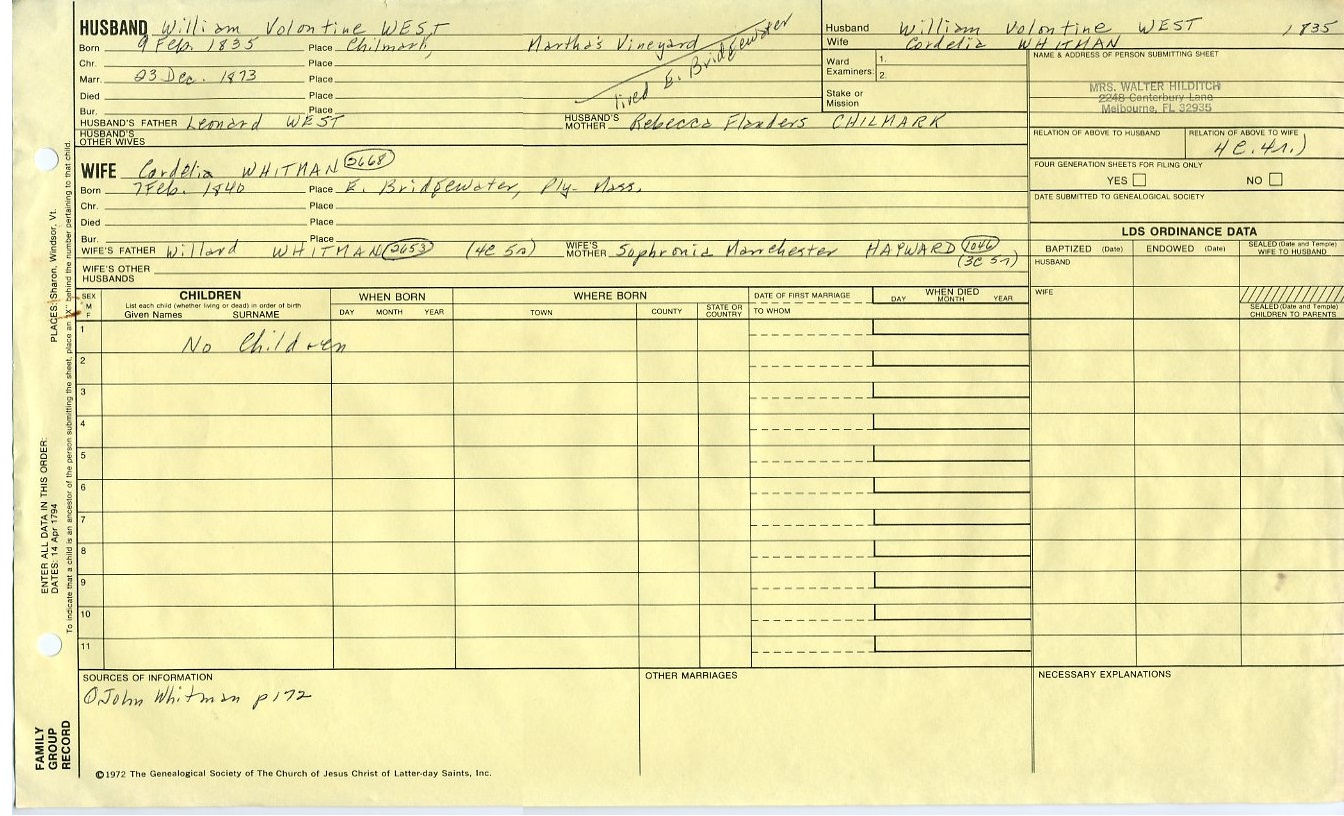 HUSBAND William Volontine WEST
Born 9 Feb. 1835 Place Chilmark, Martha's Vineyard
lived E. Bridgewater
Chr. Place
Marr. 23 Dec. 1873 Place
Died Place
Bur. Place
HUSBAND'S FATHER Leonard WEST HUSBAND'S MOTHER Rebecca Flanders CHILMARK
HUSBAND'S OTHER WIVES
WIFE Cordelia WHITMAN 2668
Born 7 Feb. 1840 Place E. Bridgewater, Ply- Mass.
Chr. Place
Died Place
Bur. Place
WIFE'S FATHER Willard WHITMAN 2653 (4C 5r) WIFE'S MOTHER Sophronia Manchester HAYWARD 1046
(3C 5r)
WIFE'S OTHER HUSBANDS
Husband William Volontine WEST 1835
Wife Cordelia WHITMAN
Ward
Examiners: 1.
2.
Stake or
Mission
NAME & ADDRESS OF PERSON SUBMITTING SHEET
MRS. WALTER HILDITCH
2248 Canterbury Lane
Melbourne, FL 32935
RELATION OF ABOVE TO HUSBAND RELATION OF ABOVE TO WIFE
4C. 4r.)
FOUR GENERATION SHEETS FOR FILING ONLY
YES NO
DATE SUBMITTED TO GENEALOGICAL SOCIETY
LDS ORDINANCE DATA
BAPTIZED (Date) ENDOWED (Date) SEALED (Date and Temple) WIFE TO HUSBAND
HUSBAND
WIFE
SEALED (Date and Temple) CHILDREN TO PARENTS
SEX
M
F
CHILDREN
List each child (whether living or dead) in order of birth
Given Names SURNAME
WHEN BORN
DAY MONTH YEAR
WHERE BORN
TOWN COUNTY STATE OR COUNTRY
DATE OF FIRST MARRIAGE
TO WHOM
WHEN DIED
DAY MONTH YEAR
1
No Children
2
3
4
5
6
7
8
9
10
11
SOURCES OF INFORMATION
John Whitman p172
OTHER MARRIAGES
NECESSARY EXPLANATIONS
©1972 The Genealogical Society of The Church of Jesus Christ of Latter-day Saints, Inc.
FAMILY
GROUP
RECORD
ENTER ALL DATA IN THIS ORDER:
DATES: 14 Apr 1794
PLACES: Sharon, Windsor, Vt.
To indicate that a child is an ancestor of the person submitting the sheet, place an "X" behind the number pertaining to that child.